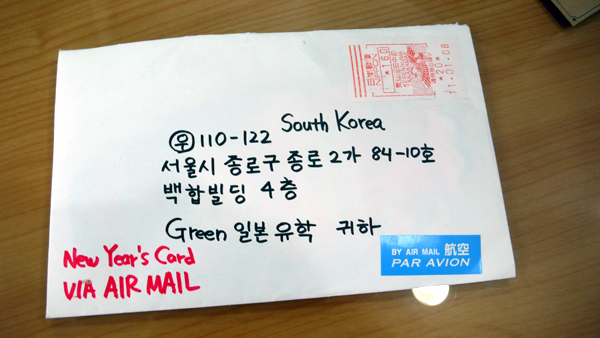 NIPPON
160
11.01.08
South Korea
우 110-122
서울시 종로구 종로2가 84-10호
백합빌딩 4층
Green 일본유학 귀하
New Year's Card
VIA AIR MAIL
BY AIR MAIL 航空
PAR AVION